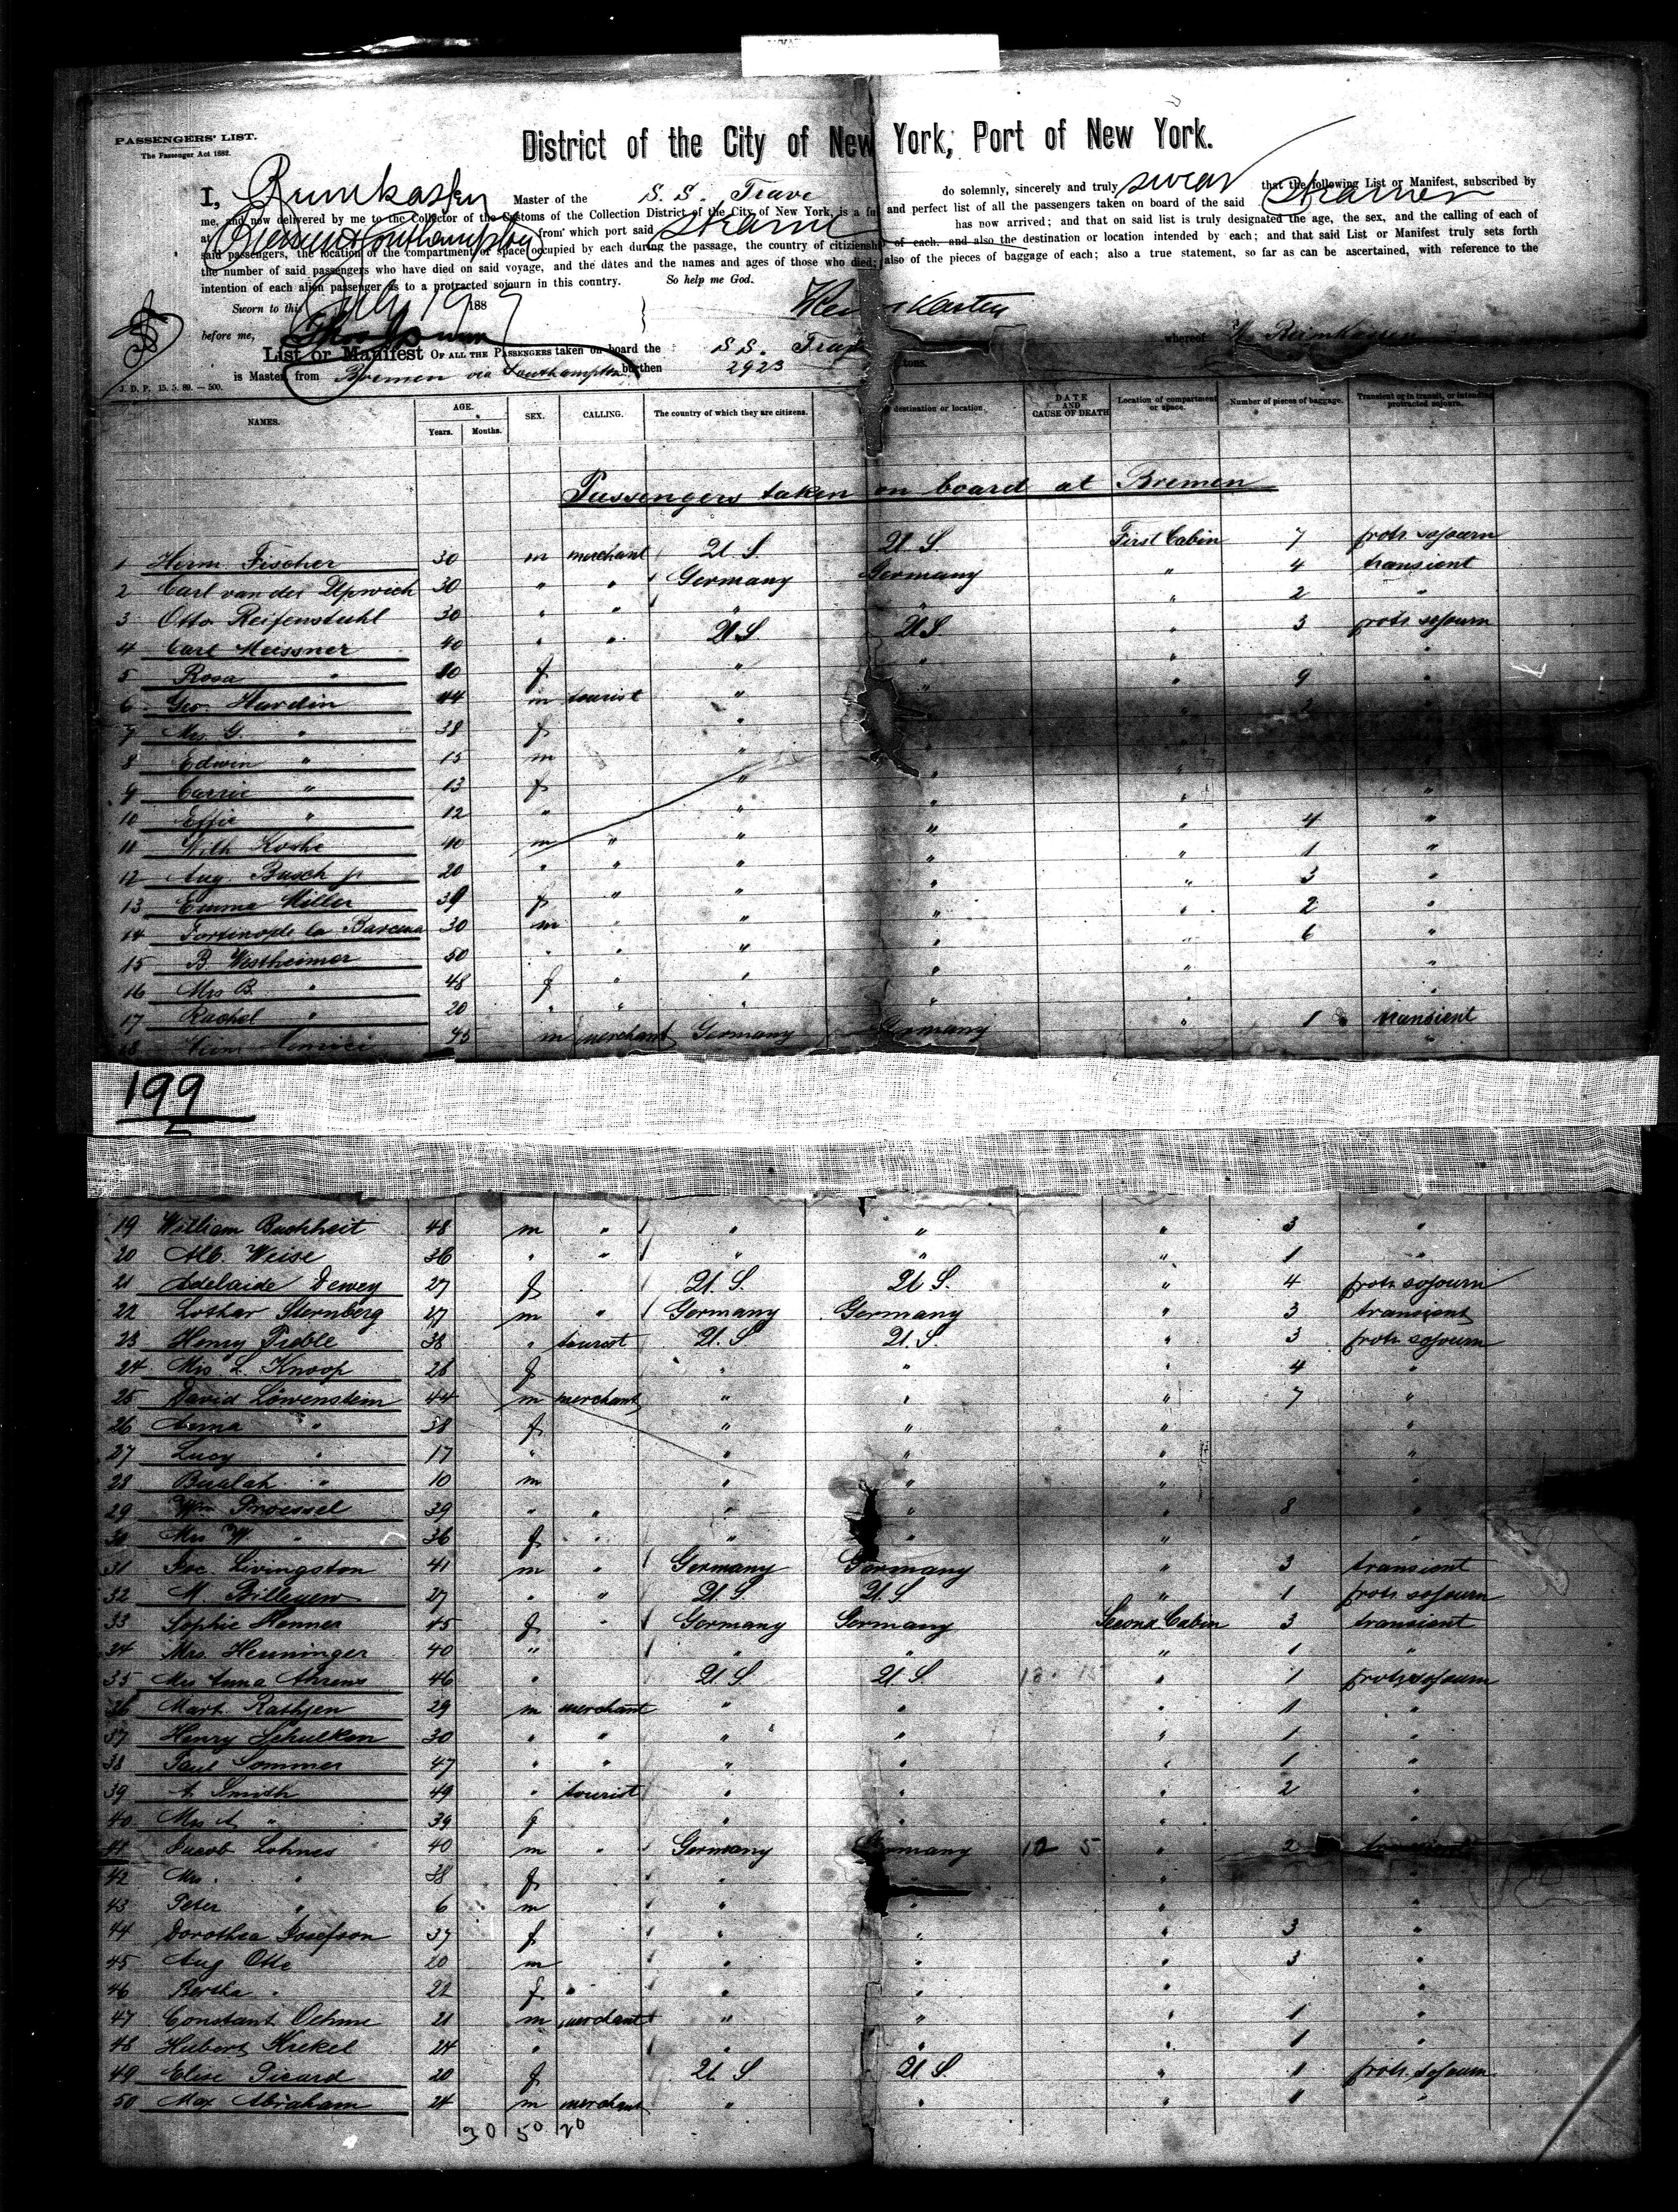 PASSENGERS' LIST.
The Passenger Act 1882.
District of the City of New York, Port of New York.
I, Reimkasten Master of the S. S. Trave do solemnly, sincerely and truly swear that the following List or Manifest, subscribed by
me, and now delivered by me to the Collector of the Customs of the Collection District of the City of New York, is a full and perfect list of all the passengers taken on board of the said Steamer
at Bremen & Southampton from which port said Steamer has now arrived; and that on said list is truly designated the age, the sex, and the calling of each of
said passengers, the location of the compartment or space occupied by each during the passage, the country of citizenship of each, and also the destination or location intended by each; and that said List or Manifest truly sets forth
the number of said passengers who have died on said voyage, and the dates and the names and ages of those who died; also of the pieces of baggage of each; also a true statement, so far as can be ascertained, with reference to the
intention of each alien passenger as to a protracted sojourn in this country. So help me God.
Sworn to this July 19 1889
before me,
List or Manifest OF ALL THE PASSENGERS taken on board the S S. Trave whereof
is Master, from Bremen via Southampton burthen 2923 tons.
J. D. P. 15. 5. 89. — 500.
NAMES. AGE. Years. Months. SEX. CALLING. The country of which they are citizens. destination or location. DATE AND CAUSE OF DEATH Location of compartment or space. Number of pieces of baggage. Transient or in transit, or intending protracted sojourn.
Passengers taken on board at Bremen
1 Herm. Fischer 30 m merchant U. S. U. S. First Cabin 7 protr. sojourn
2 Carl van der Upwich 30 " " Germany Germany " 4 transient
3 Otto Reifenstuhl 30 " " " " " 2 "
4 Carl Meissner 40 " " U.S. U.S. " 3 protr. sojourn
5 Rosa " 40 f " " " "
6 Geo. Hardin 44 m tourist " " " 9 "
7 Mrs. G. " 38 f " " " 2 "
8 Edwin " 15 m " "
9 Carrie " 13 f " " " "
10 Effie " 12 " " " " "
11 Wilh Koshe 40 m " " " " 4 "
12 Aug. Busch jr 20 " " " " " 1 "
13 Emma Miller 39 f " " " " 3 "
14 Fortino de la Barcena 30 m " " " " 2 "
15 B. Westheimer 50 " " " " " 6 "
16 Mrs B. " 48 f " " " " "
17 Rachel " 20 " " " " " "
18 45 m merchant Germany Germany " 1 transient
199
19 William Buchheit 48 m " " " " 3 "
20 Alb. Weise 36 " " " " " 1 "
21 Adelaide Dewey 27 f U. S. U. S. " 4 protr. sojourn
22 Lothar Sternberg 27 m " Germany Germany " 3 transient
23 Henry Pieble 38 " tourist U. S. U. S. " 3 protr. sojourn
24 Mrs L. Knoop 28 f " " " 4 "
25 David Löwenstein 44 m merchant " " " 7 "
26 Anna " 38 f " " " "
27 Lucy " 17 " " " " "
28 Bualah " 10 m " " " "
29 Wm. Proessel 39 " " " " " 8 "
30 Mrs W " 36 f " " " " "
31 Joc. Livingston 41 m " Germany Germany " 3 transient
32 M. Billeyew 27 " " U. S. U. S. " 1 protr. sojourn
33 Sophie Henner 45 f " Germany Germany Second Cabin 3 transient
34 Mrs. Henninger 40 " " " " 1 "
35 Mrs Anna Ahrens 46 " U. S. U. S. " 1 protr. sojourn
36 Mart. Rathjen 29 m merchant " " " 1 "
37 Henry Schulken 30 " " " " " 1 "
38 Paul Sommer 47 " " " " " 1 "
39 A Smith 49 " tourist " " " 2 "
40 Mrs A " 39 f " " " "
41 Jacob Lohnes 40 m " Germany Germany 12 5 " 2 transient
42 Mrs. " 38 f " " " "
43 Peter " 6 m " " " "
44 Dorothea Josefson 37 f " " " 3 "
45 Aug Otte 20 m " " " 3 "
46 Bertha " 22 f " " " " "
47 Constant Oehme 21 m merchant " " " 1 "
48 Hubert Krekel 24 " " " " 1 "
49 Elise Picard 20 f U. S U. S " 1 protr. sojourn
50 Max Abraham 24 m merchant " " " 1 "
30 50 20